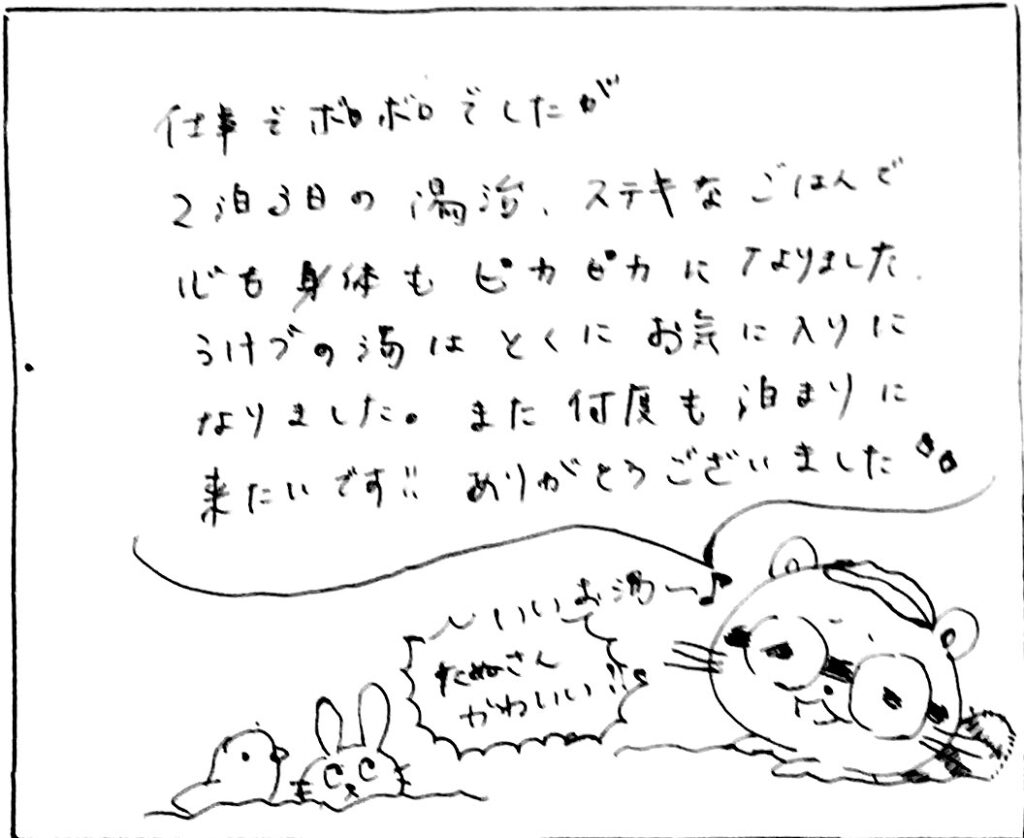 仕事でボロボロでしたが
2泊3日の湯治、ステキなごはんで
心も身体もピカピカになりました。
うけづの湯はとくにお気に入りに
なりました。また何度も泊まりに
来たいです!! ありがとうございました
いいお湯〜♪
たぬさん
かわいい!!